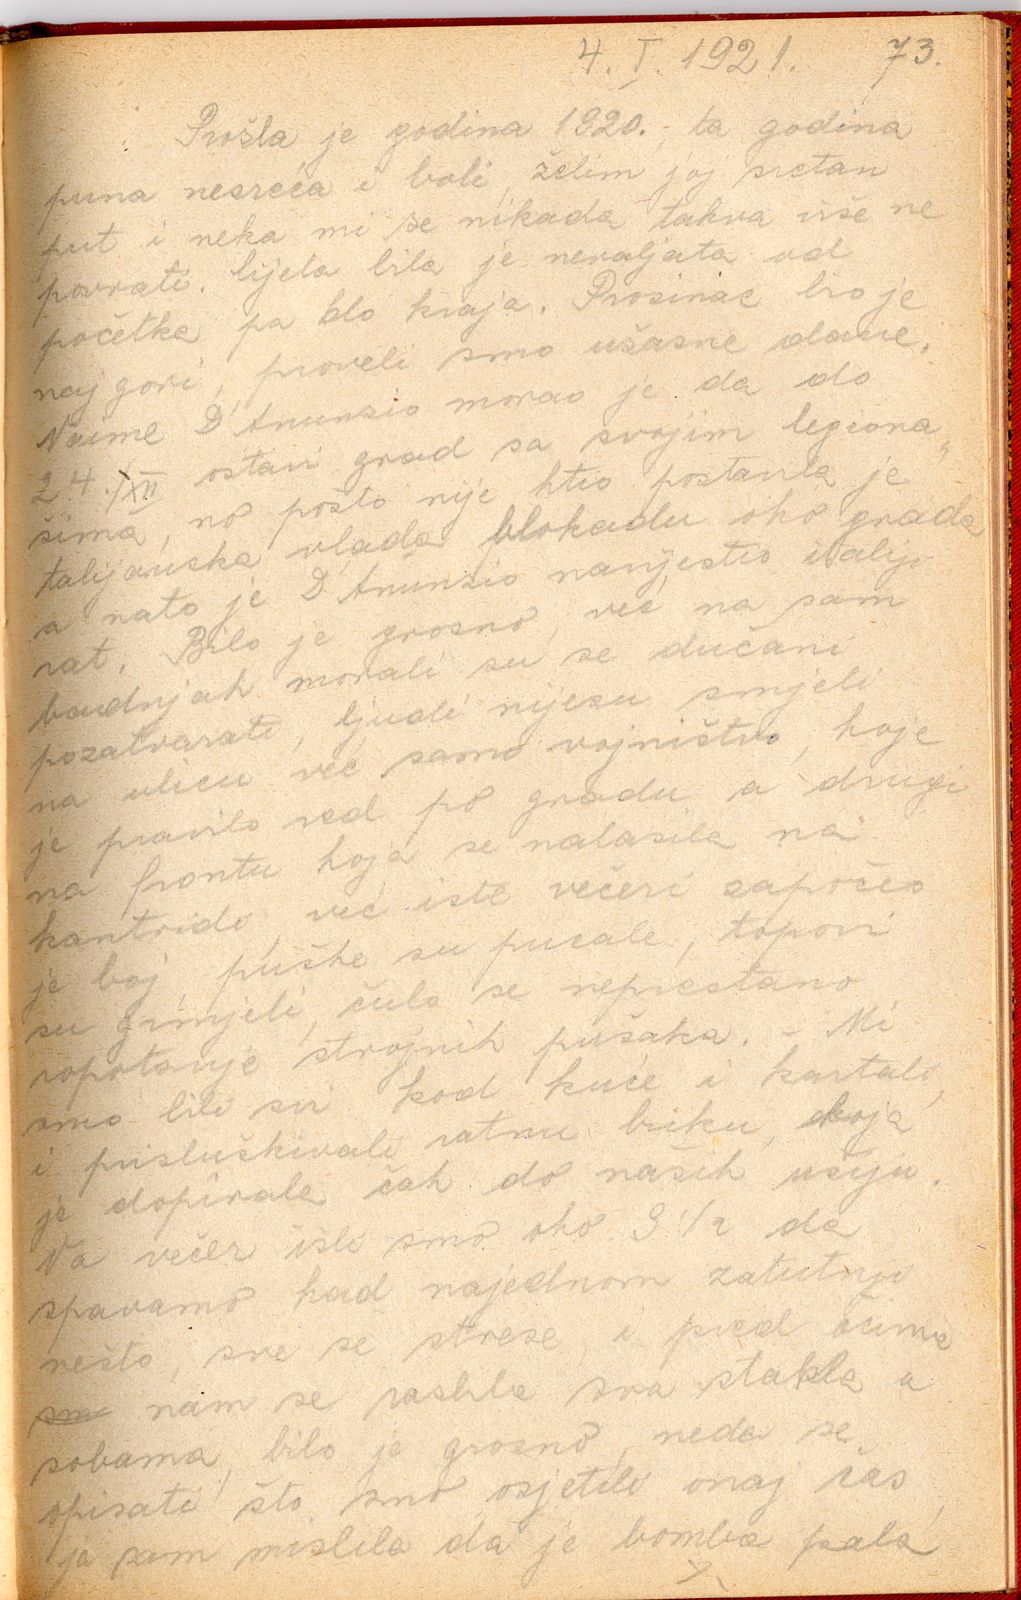 4. I. 1921. 73.
Prošla je godina 1920., ta godina
puna nesreća i boli, želim joj sretan
put i neka mi se nikada takva više ne
povrati. Cijela bila je nevaljata od
početka pa do kraja. Prosinac bio je
najgori, proveli smo užasne dane.
Naime D'Anunzio morao je da do
24./XII ostavi grad sa svojim legiona„
šima, no pošto nije htio postavila je
talijanska vlada blokadu oko grada
a nato je D'Anunzio navjestio italiji
rat. Bilo je grozno, već na sam
badnjak morali su se dućani
pozatvarati, ljudi nijesu smjeli
na ulicu već samo vojništvo, koje
je pravilo red po gradu a drugi
na frontu koja se nalazila na
kantridi, već iste večeri započeo
je boj, puške su pucale, topovi
su grmjeli, čulo se neprestano
ropotanje strojnih pušaka. – Mi
smo bili svi kod kuće i kartali,
i prisluškivali ratnu buku, koja
je dopirala čak do naših ušiju.
Na večer išli smo oko 9 1/2 da
spavamo kad najednom zatutnji
nešto, sve se strese, i pred očima
sm nam se razbila sva stakla u
sobama, bilo je grozno, neda se
opisati što smo osjetili onaj čas,
ja sam mislila da je bomba pala